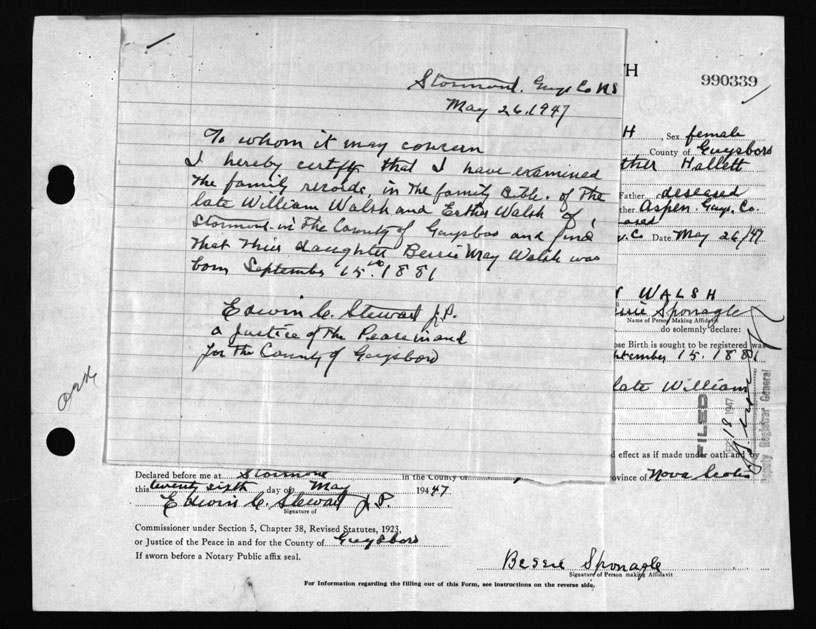 Stormont. Guys Co NS
May 26. 1947
To whom it may concern
I hereby certify that I have examined
the family records, in the family Bible. of the
late William Walsh and Esther Walsh of
Stormont. in the County of Guysboro and find
that their daughter Bessie May Walsh was
born September 15th. 1881
Edwin C. Stewart J.P.
a Justice of the Peace in and
for the County of Guysboro
H
990339
H , Sex female
County of Guysboro
ther Hallett
Father deseased
ther Aspen. Guys. Co.
eased
y. Co. Date May 26/47
WALSH
ssie Sponagle
Name of Person Making Affidavit
do solemnly declare:
ose Birth is sought to be registered was
ptember 15. 1881
late William
FILED
18 1947
Deputy Registrar General
d effect as if made under oath and by
rovince of Nova Scotia
Declared before me at Stormont in the County of
this twenty sixth day of May 1947.
Edwin C. Stewart J.P.
Signature of
Commissioner under Section 5, Chapter 38, Revised Statutes, 1923,
or Justice of the Peace in and for the County of Guysboro
If sworn before a Notary Public affix seal.
Bessie Sponagle
Signature of Person making Affidavit
For Information regarding the filling out of this Form, see instructions on the reverse side.